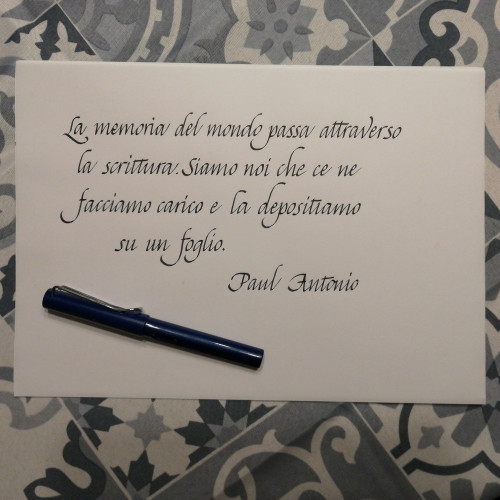 La memoria del mondo passa attraverso
la scrittura. Siamo noi che ce ne
facciamo carico e la depositiamo
su un foglio.
Paul Antonio